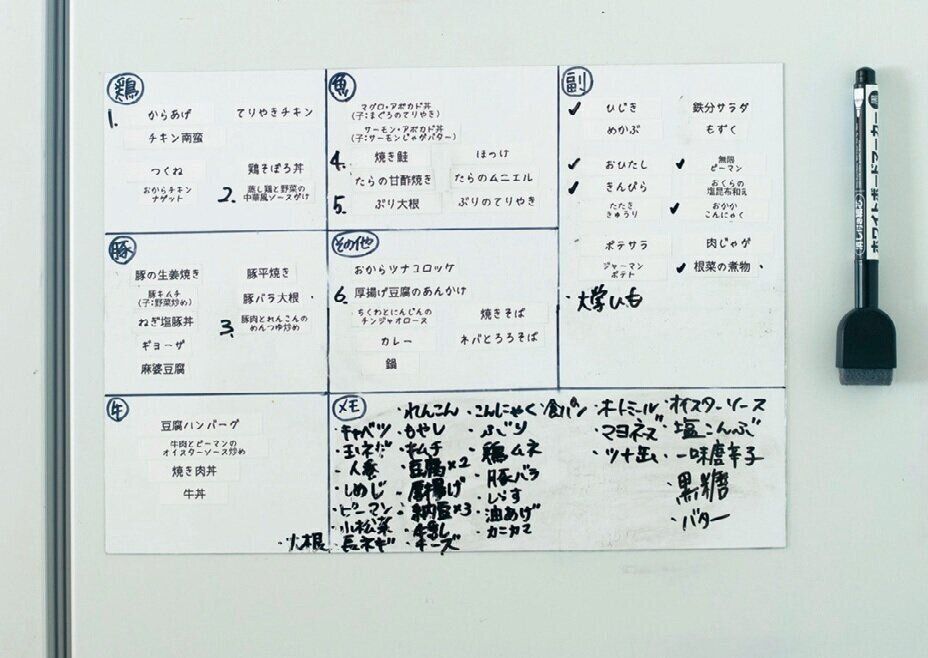 鶏
1. からあげ てりやきチキン
チキン南蛮
つくね 鶏そぼろ丼
おからチキン
ナゲット
2. 蒸し鶏と野菜の
中華風ソースがけ
魚
マグロ・アボカド丼
(子:まぐろのてりやき)
サーモン・アボカド丼
(子:サーモンじゃがバター)
4. 焼き鮭 ほっけ
たらの甘酢焼き たらのムニエル
5. ぶり大根 ぶりのてりやき
副
✓ ひじき 鉄分サラダ
めかぶ もずく
✓ おひたし ✓ 無限
ピーマン
✓ きんぴら おくらの
塩昆布和え
たたき
きゅうり
✓ おかか
こんにゃく
ポテサラ 肉じゃが
ジャーマン
ポテト
✓ 根菜の煮物 ・
・大学いも
豚
豚の生姜焼き 豚平焼き
豚キムチ
(子:野菜炒め)
豚バラ大根 ・
ねぎ塩豚丼
3. 豚肉とれんこんの
めんつゆ炒め
ギョーザ
麻婆豆腐
その他
おからツナコロッケ
6. 厚揚げ豆腐のあんかけ
ちくわとにんじんの
チンジャオロース
焼きそば
カレー ネバとろろそば
鍋
牛
豆腐ハンバーグ
牛肉とピーマンの
オイスターソース炒め
焼き肉丼
牛丼
メモ
・キャベツ
・玉ネギ
・人参
・しめじ
・ピーマン
・小松菜
・長ネギ
・大根
・れんこん
・もやし
・キムチ
・豆腐×2
・厚揚げ
・納豆×3
・牛乳
・チーズ
・こんにゃく
・ぶり
・鶏ムネ
・豚バラ
・しらす
・油あげ
・カニカマ
・食パン
・オートミール
・マヨネーズ
・ツナ缶
・オイスターソース
・塩こんぶ
・一味唐辛子
・黒糖
・バター
ホワイトボードマーカー